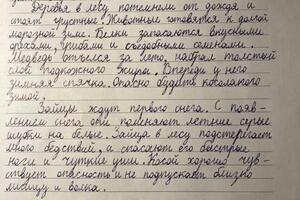 Деревья в лесу потемнели от дождя и
стоят грустные. Животные готовятся к долгой
морозной зиме. Белки запасаются вкусными
орехами, грибами и съедобными семенами.
Медведь отъелся за лето, набрал толстый
слой подкожного жира. Впереди у него
зимняя спячка. Опасно будить косолапого
зимой.
Зайцы ждут первого снега. С появ-
лением снега они поменяют летние серые
шубки на белые. Зайца в лесу подстерегает
много бедствий, и спасают его быстрые
ноги и чуткие уши. Косой хорошо чув-
ствует опасность и не подпускает близко
лисицу и волка.